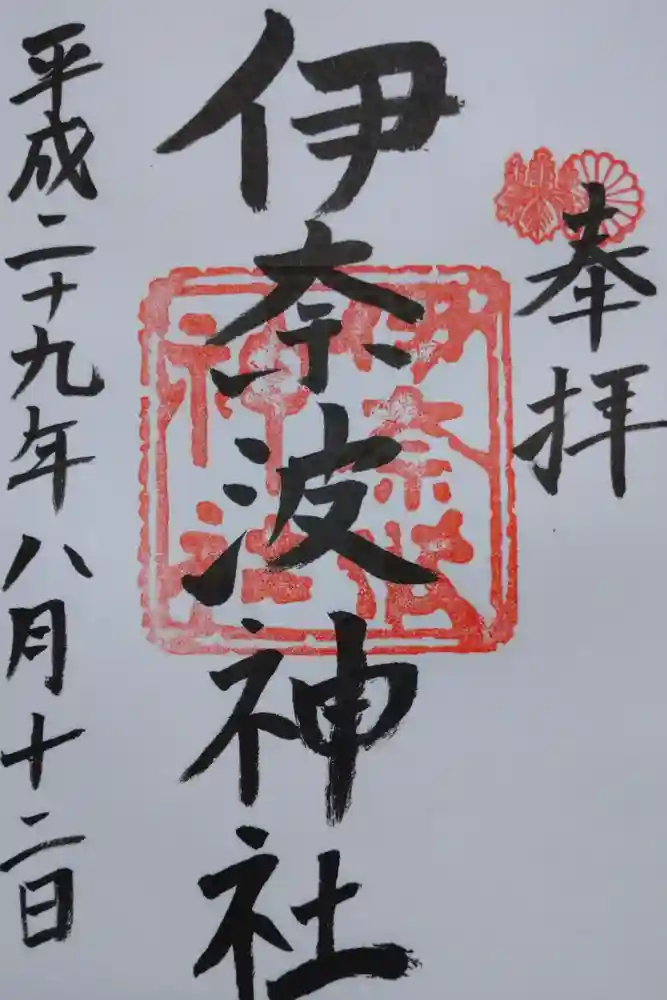 奉拝
伊奈波神社
伊奈波
神社
平成二十九年八月十二日